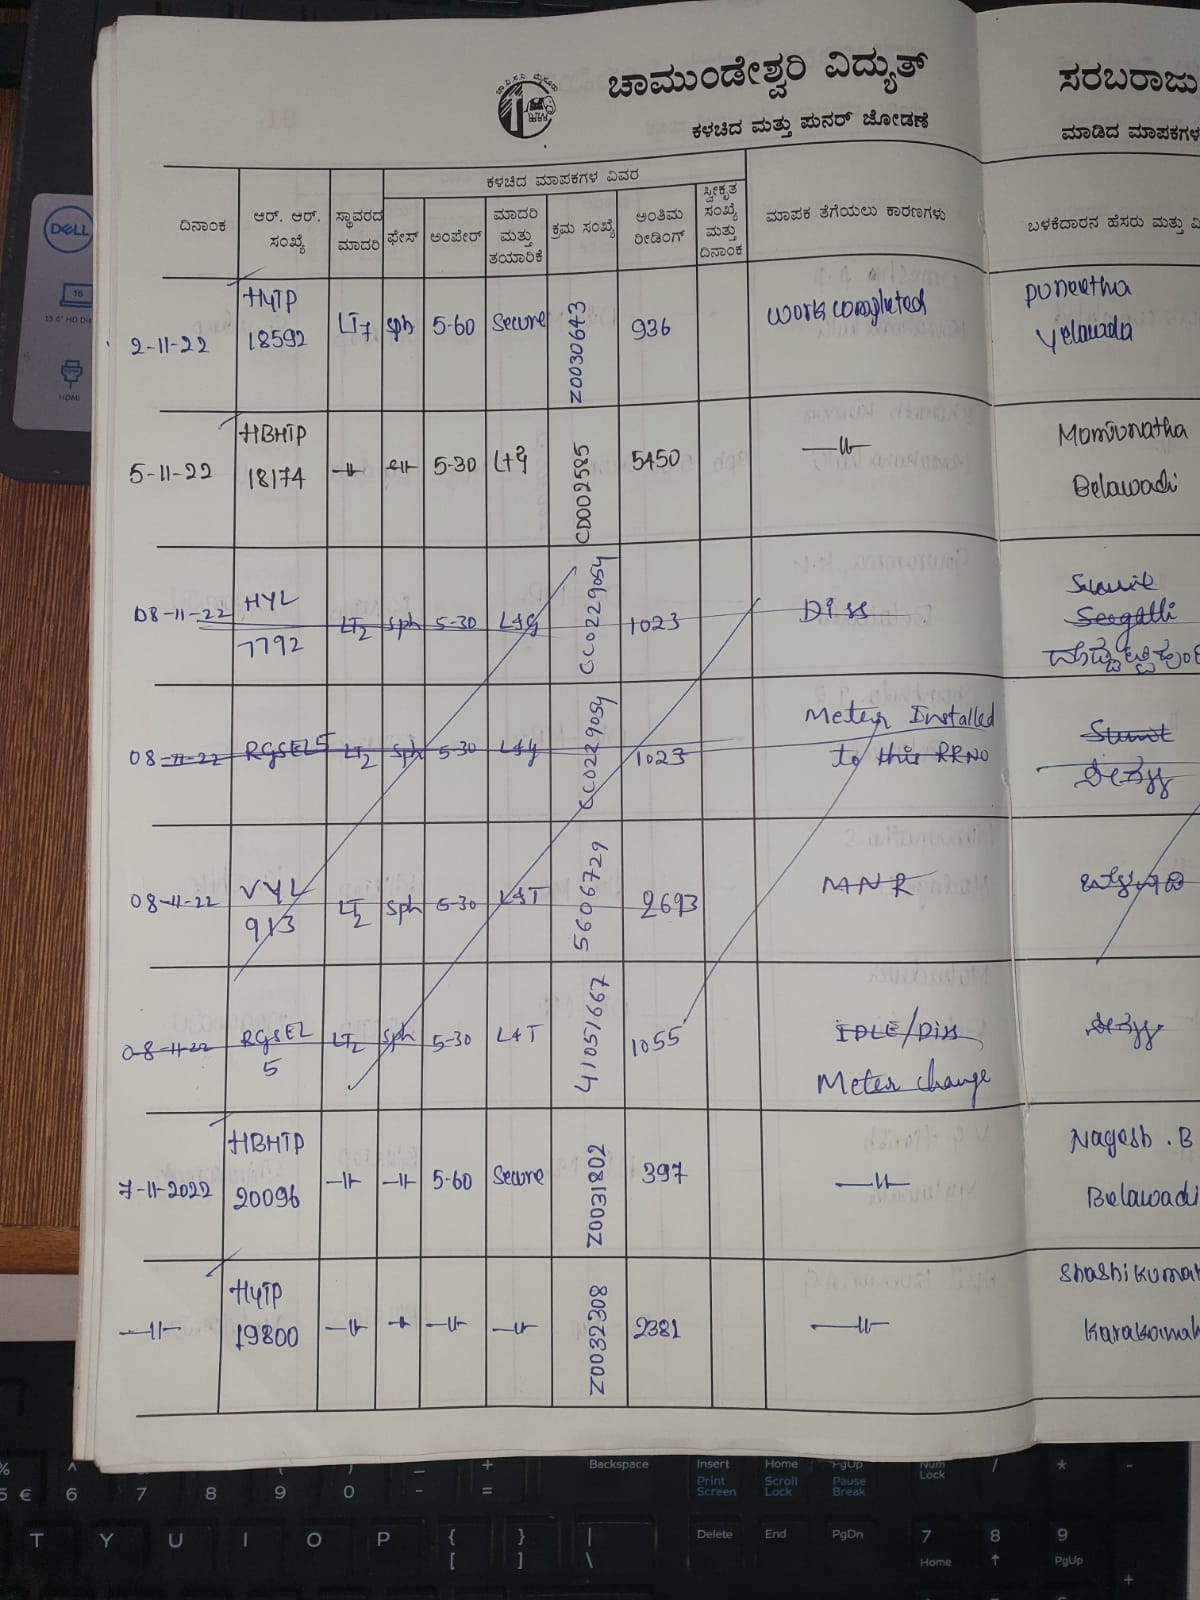 ಚಾಮುಂಡೇಶ್ವರಿ ವಿದ್ಯುತ್ ಸರಬರಾಜು
ಕಳಚಿದ ಮತ್ತು ಪುನರ್ ಜೋಡಣೆ ಮಾಡಿದ ಮಾಪಕಗಳ
ಕಳಚಿದ ಮಾಪಕಗಳ ವಿವರ
ದಿನಾಂಕ
ಆರ್. ಆರ್. ಸಂಖ್ಯೆ
ಸ್ಥಾವರದ ಮಾದರಿ
ಫೇಸ್
ಅಂಪೇರ್
ಮಾದರಿ ಮತ್ತು ತಯಾರಿಕೆ
ಕ್ರಮ ಸಂಖ್ಯೆ
ಅಂತಿಮ ರೀಡಿಂಗ್
ಸ್ವೀಕೃತ ಸಂಖ್ಯೆ ಮತ್ತು ದಿನಾಂಕ
ಮಾಪಕ ತೆಗೆಯಲು ಕಾರಣಗಳು
ಬಳಕೆದಾರನ ಹೆಸರು ಮತ್ತು ವಿ
2-11-22 HYTP 18592 LT7 sph 5-60 Secure Z0030643 936 work completed Puneetha Yelawada
5-11-22 HBHTP 18174 5-30 CD002585 5450 Belawadi
08-11-22 HYL 7792 LT2 Sph 5-30 CC0229054 1023 Diss
08-11-22 RGSEL5 LT2 Sph 5-30 CC0229054 1023 Meter Installed to this RRNO
08-11-22 VYL 913 LT2 Sph 5-30 L&T 5606729 2693 MNR
08-11-22 RGSEL 5 LT2 Sph 5-30 L&T 41051667 1055 IDLE/Diss Meter change
7-11-2022 HBHTP 20096 5-60 Secure Z0031802 397 Nagesh .B Belawadi
HYTP 19800 Z0032308 2381 Shashikumar
DELL
15.6" HD
HDMI
Backspace
Insert
Print Screen
Home
Scroll Lock
PgUp
Pause Break
Num Lock
/ * -
5 € 6 7 8 9 0 - =
T Y U I O P { [ } ] | \
Delete End PgDn
7 Home 8 9 PgUp
+